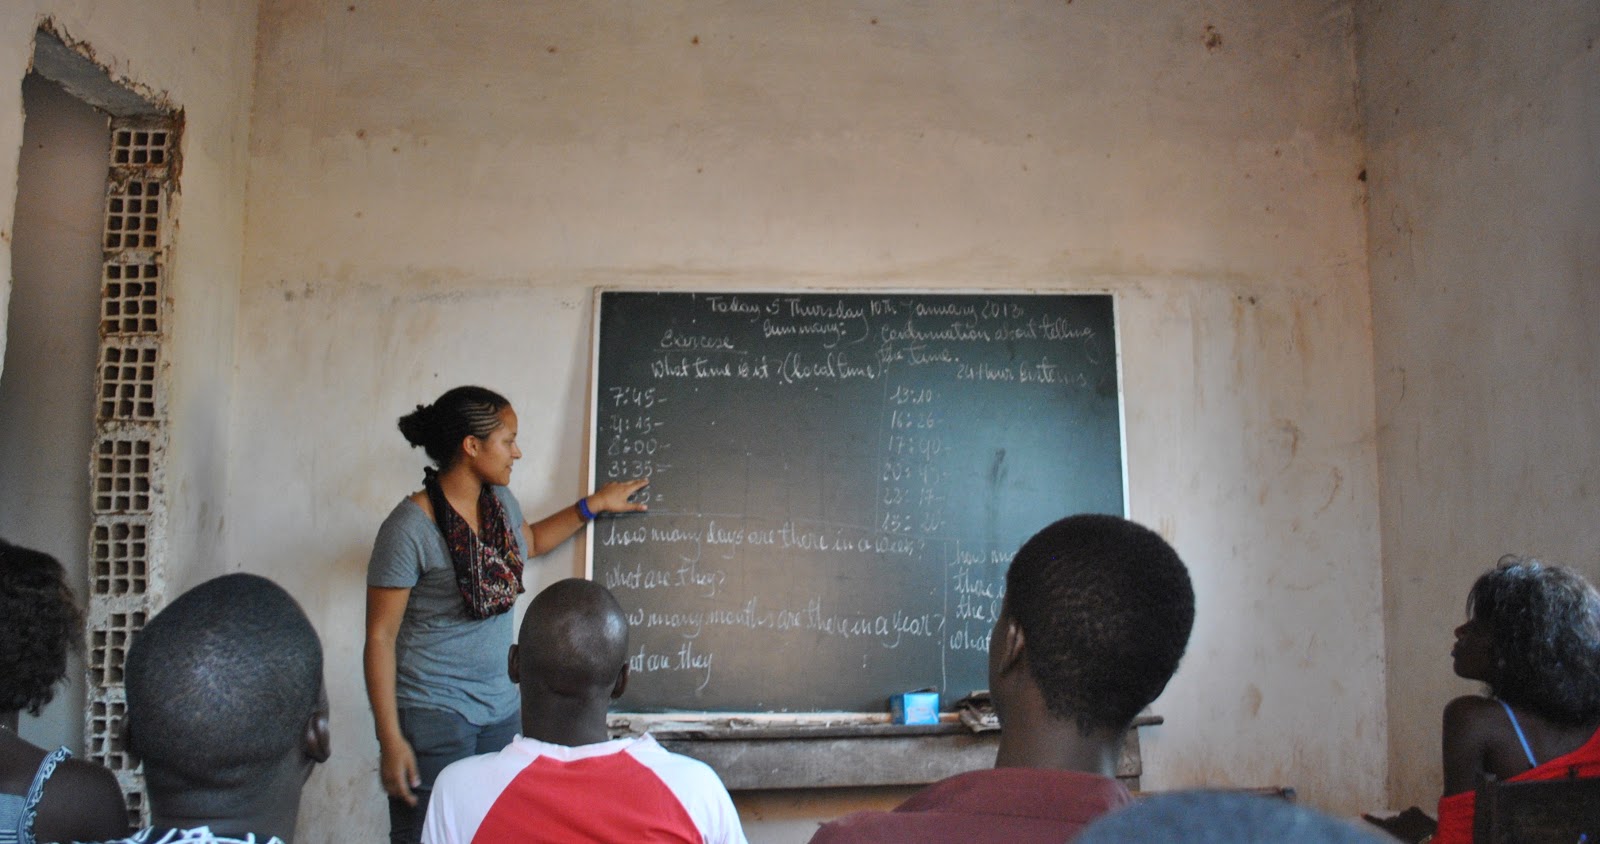 Today is Thursday 10th January 2013
Summary: Continuation about telling
the time.
Exercise
What time is it? (local time)
7:45-
4:15-
8:00-
3:35=
24 Hour
13:10-
16:26-
17:40-
20:45-
22:17-
15:20-
how many days are there in a week?
What are they?
many months are there in a year?
are they
how
there
the
what